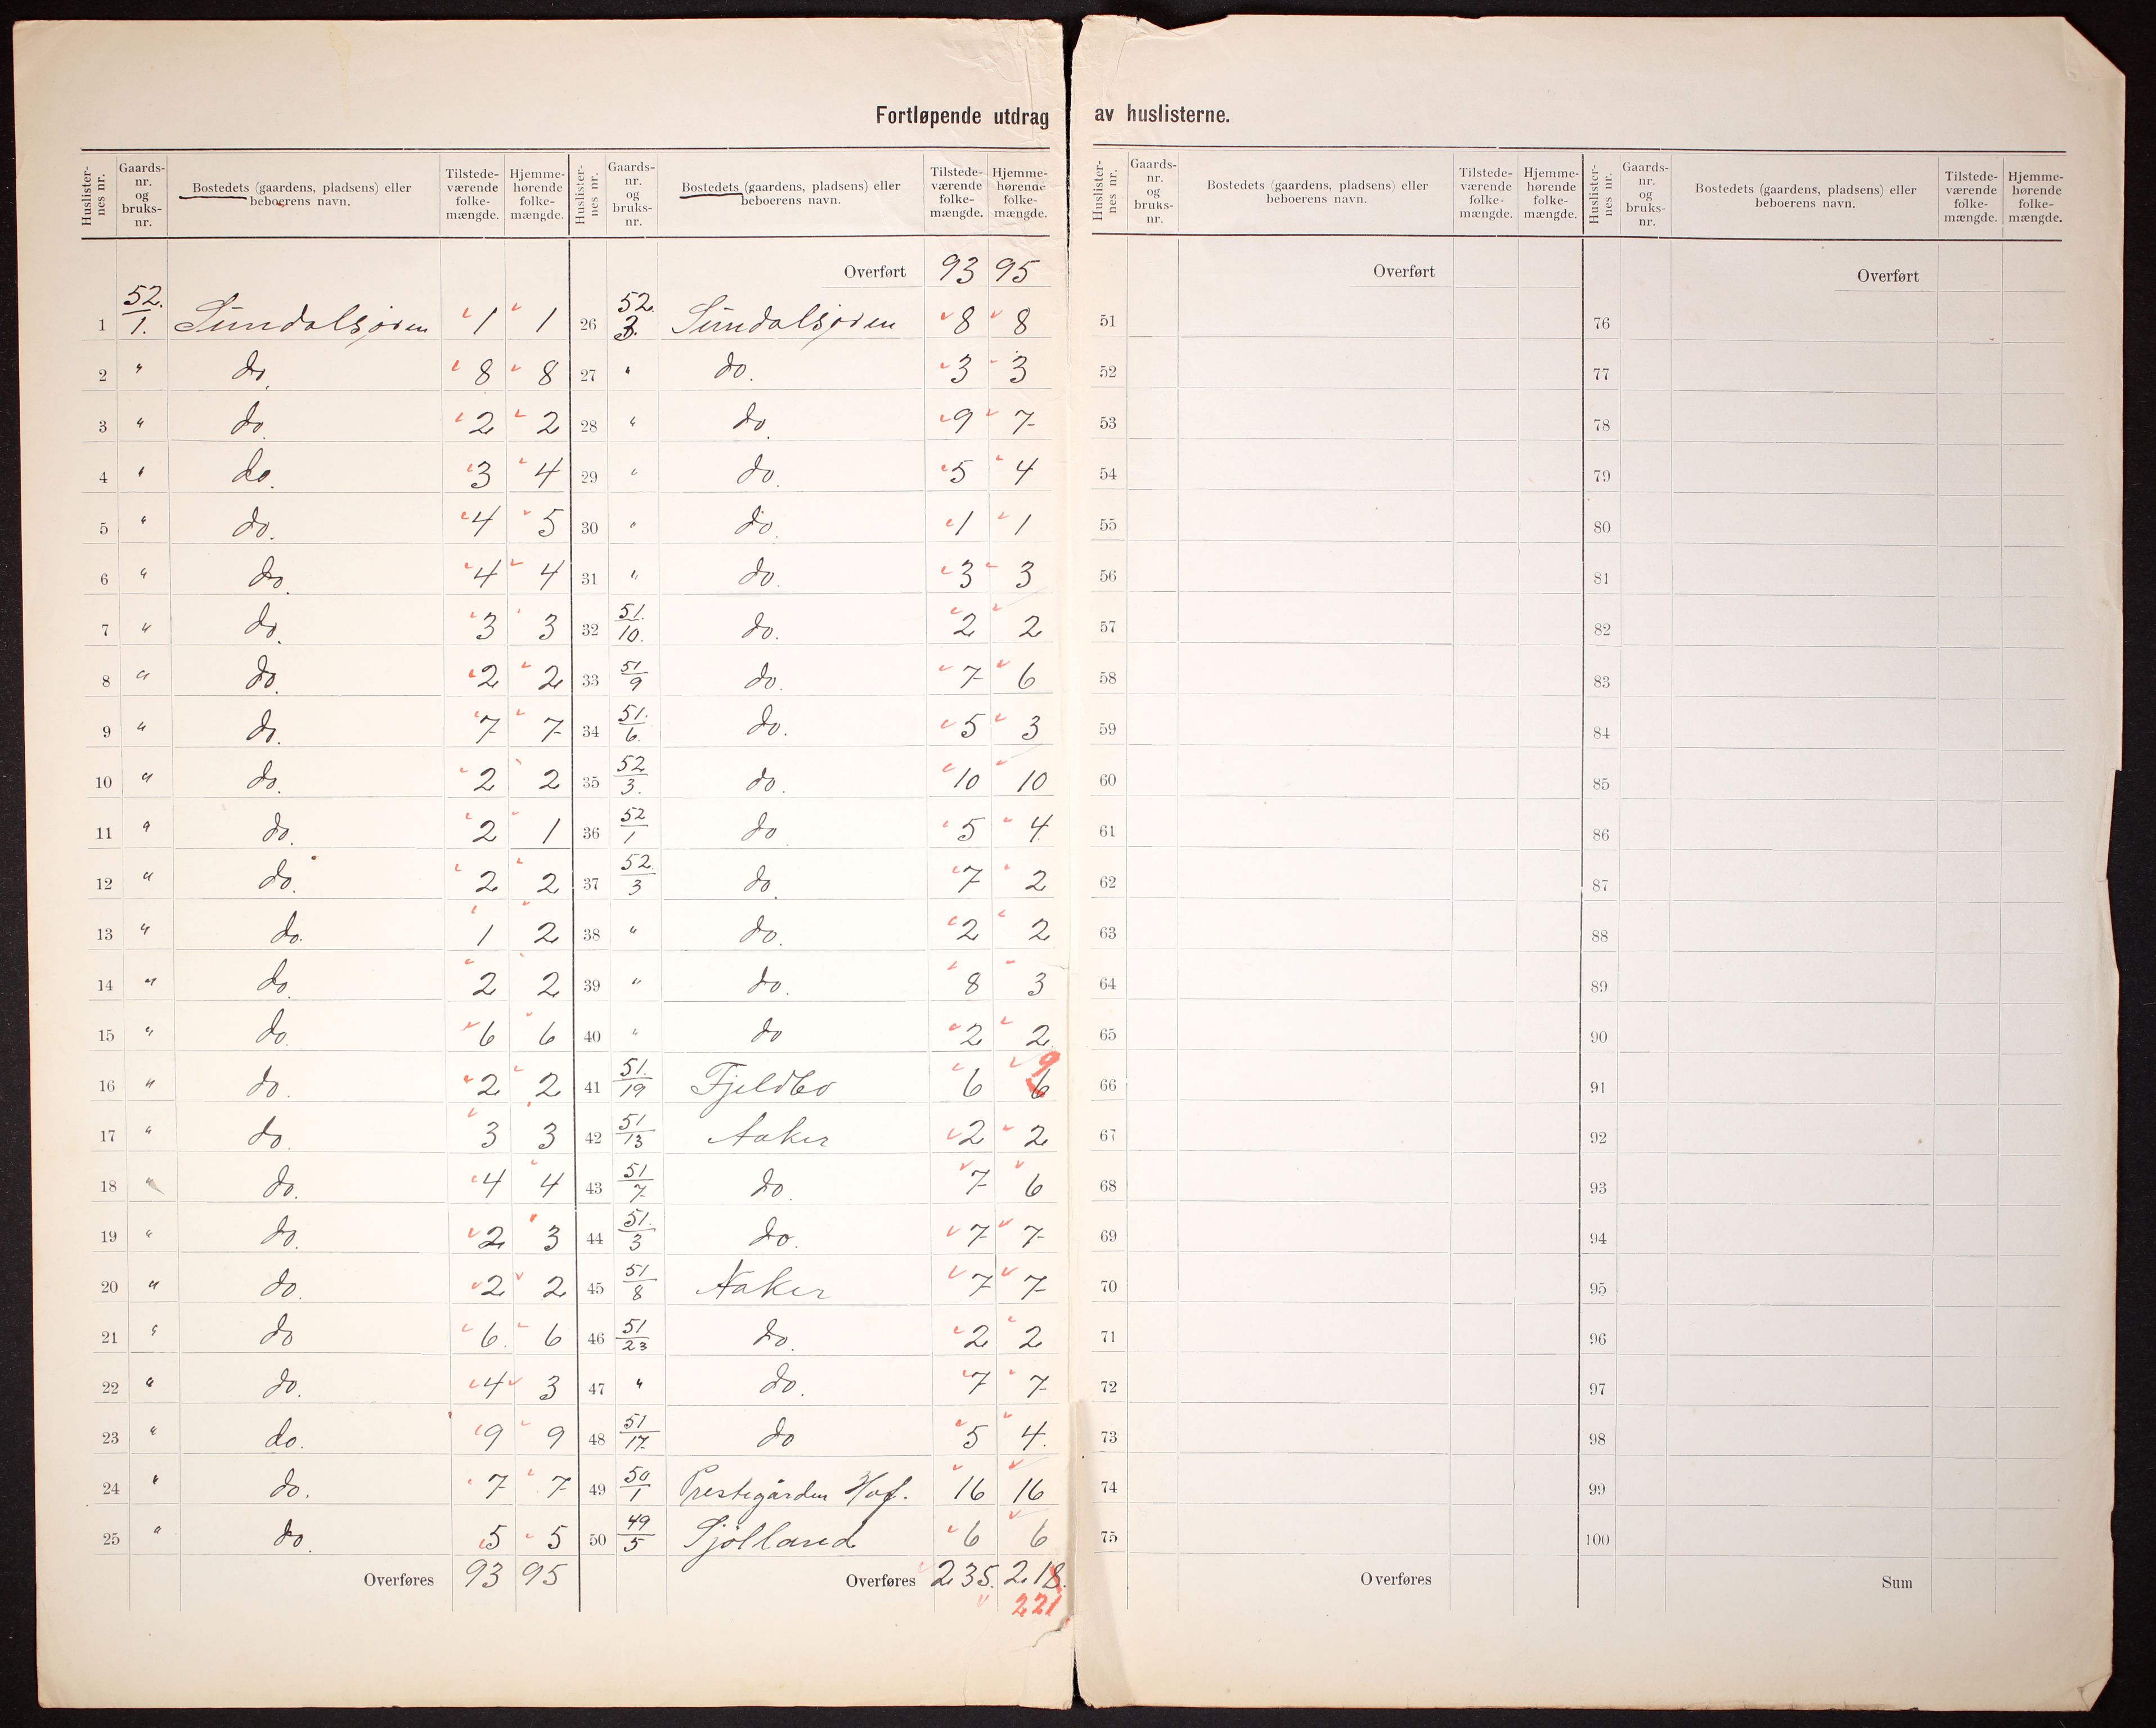 Fortløpende utdrag av huslisterne.
Huslisternes nr. | Gaards-nr. og bruks-nr. | Bostedets (gaardens, pladsens) eller beboerens navn. | Tilstedeværende folke-mængde. | Hjemme-hørende folke-mængde. | Huslisternes nr. | Gaards-nr. og bruks-nr. | Bostedets (gaardens, pladsens) eller beboerens navn. | Tilstede-værende folke-mængde. | Hjemme-hørende folke-mængde.
Overført 93 95
1 52./1. Sundalsøren 1 1 26 52./3. Sundalsøren 8 8
2 " do. 8 8 27 " do. 3 3
3 " do. 2 2 28 " do. 9 7
4 " do. 3 4 29 " do. 5 4
5 " do. 4 5 30 " do. 1 1
6 " do. 4 4 31 " do. 3 3
7 " do. 3 3 32 51./10. do. 2 2
8 " do. 2 2 33 51/9 do. 7 6
9 " do. 7 7 34 51./6. do. 5 3
10 " do. 2 2 35 52/3. do. 10 10
11 " do. 2 1 36 52/1 do 5 4
12 " do. 2 2 37 52./3 do. 7 2
13 " do. 1 2 38 " do. 2 2
14 " do. 2 2 39 " do. 8 3
15 " do. 6 6 40 " do 2 2
16 " do. 2 2 41 51./19 Fjeldbo 6 6 9
17 " do. 3 3 42 51/13 Aaker 2 2
18 " do. 4 4 43 51/7 do. 7 6
19 " do. 2 3 44 51./3 do. 7 7
20 " do. 2 2 45 51/8 Aaker 7 7
21 " do 6 6 46 51/23 do. 2 2
22 " do. 4 3 47 " do. 7 7
23 " do. 9 9 48 51/17 do 5 4.
24 " do. 7 7 49 50/1 Prestegården Hof. 16 16
25 " do. 5 5 50 49/5 Sjölland 6 6
Overføres 93 95 Overføres 235. 218.
221
Huslisternes nr. | Gaards-nr. og bruks-nr. | Bostedets (gaardens, pladsens) eller beboerens navn. | Tilstede-værende folke-mængde. | Hjemme-hørende folke-mængde. | Huslisternes nr. | Gaards-nr. og bruks-nr. | Bostedets (gaardens, pladsens) eller beboerens navn. | Tilstede-værende folke-mængde. | Hjemme-hørende folke-mængde.
Overført Overført
51 76
52 77
53 78
54 79
55 80
56 81
57 82
58 83
59 84
60 85
61 86
62 87
63 88
64 89
65 90
66 91
67 92
68 93
69 94
70 95
71 96
72 97
73 98
74 99
75 100
Overføres Sum